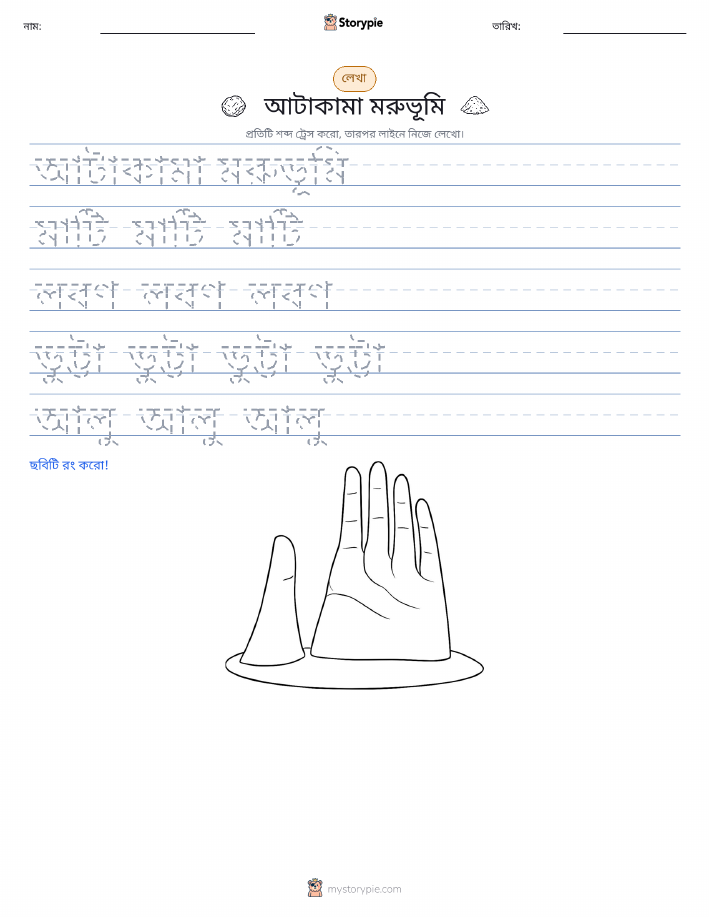 নাম:
Storypie
তারিখ:
লেখা
আটাকামা মরুভূমি
প্রতিটি শব্দ ট্রেস করো, তারপর লাইনে নিজে লেখো।
আটাকামা মরুভূমি
মাটি মাটি মাটি
লবণ লবণ লবণ
ভুট্টা ভুট্টা ভুট্টা ভুট্টা
আলু আলু আলু
ছবিটি রং করো!
mystorypie.com